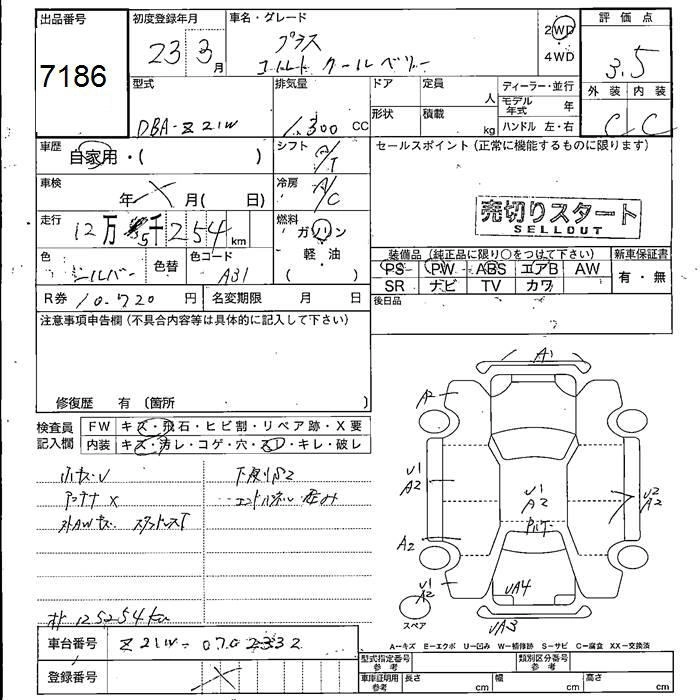 出品番号
7186
初度登録年月
23 3月
車名・グレード
プラス
コルト クールベリー
2WD
4WD
評価点
3.5
外装 内装
C C
型式
DBA-Z21W
排気量
1,300 CC
ドア
定員
人
形状
積載
kg
ディーラー・並行
モデル年式 年
ハンドル 左・右
車歴
自家用・( )
シフト
A/T
車検
年 月( 日)
冷房
A/C
セールスポイント (正常に機能するものに限ります)
売切りスタート
SELLOUT
走行
12万 5千 254 km
燃料
ガソリン
軽油
( )
色
シルバー
色替
色コード
A31
装備品 (純正品に限り○をつけて下さい)
新車保証書
PS PW ABS エアB AW
SR ナビ TV カワ
有・無
R券 10,720 円
名変期限 月 日
後日品
注意事項申告欄 (不具合内容等は具体的に記入して下さい)
修復歴 有 〔箇所 〕
検査員
記入欄
FW キズ・飛石・ヒビ割・リペア跡・X要
内装 キズ・汚レ・コゲ・穴・スレ・キレ・破レ
小キズ・U
下廻りS2
アンテナ X
エンドパネル 歪み
オド 125254km
A1
A2
U1
A2
A2
U1
A2
U1
A2
U2
A2
UA4
UA3
スペア
車台番号
Z21W-0702332
登録番号
A-キズ E-エクボ U-凹み W-補修跡 S-サビ C-腐食 XX-交換済
型式指定番号
参考
類別区分番号
参考
車庫証明用
参考
長さ cm
幅 cm
高さ cm